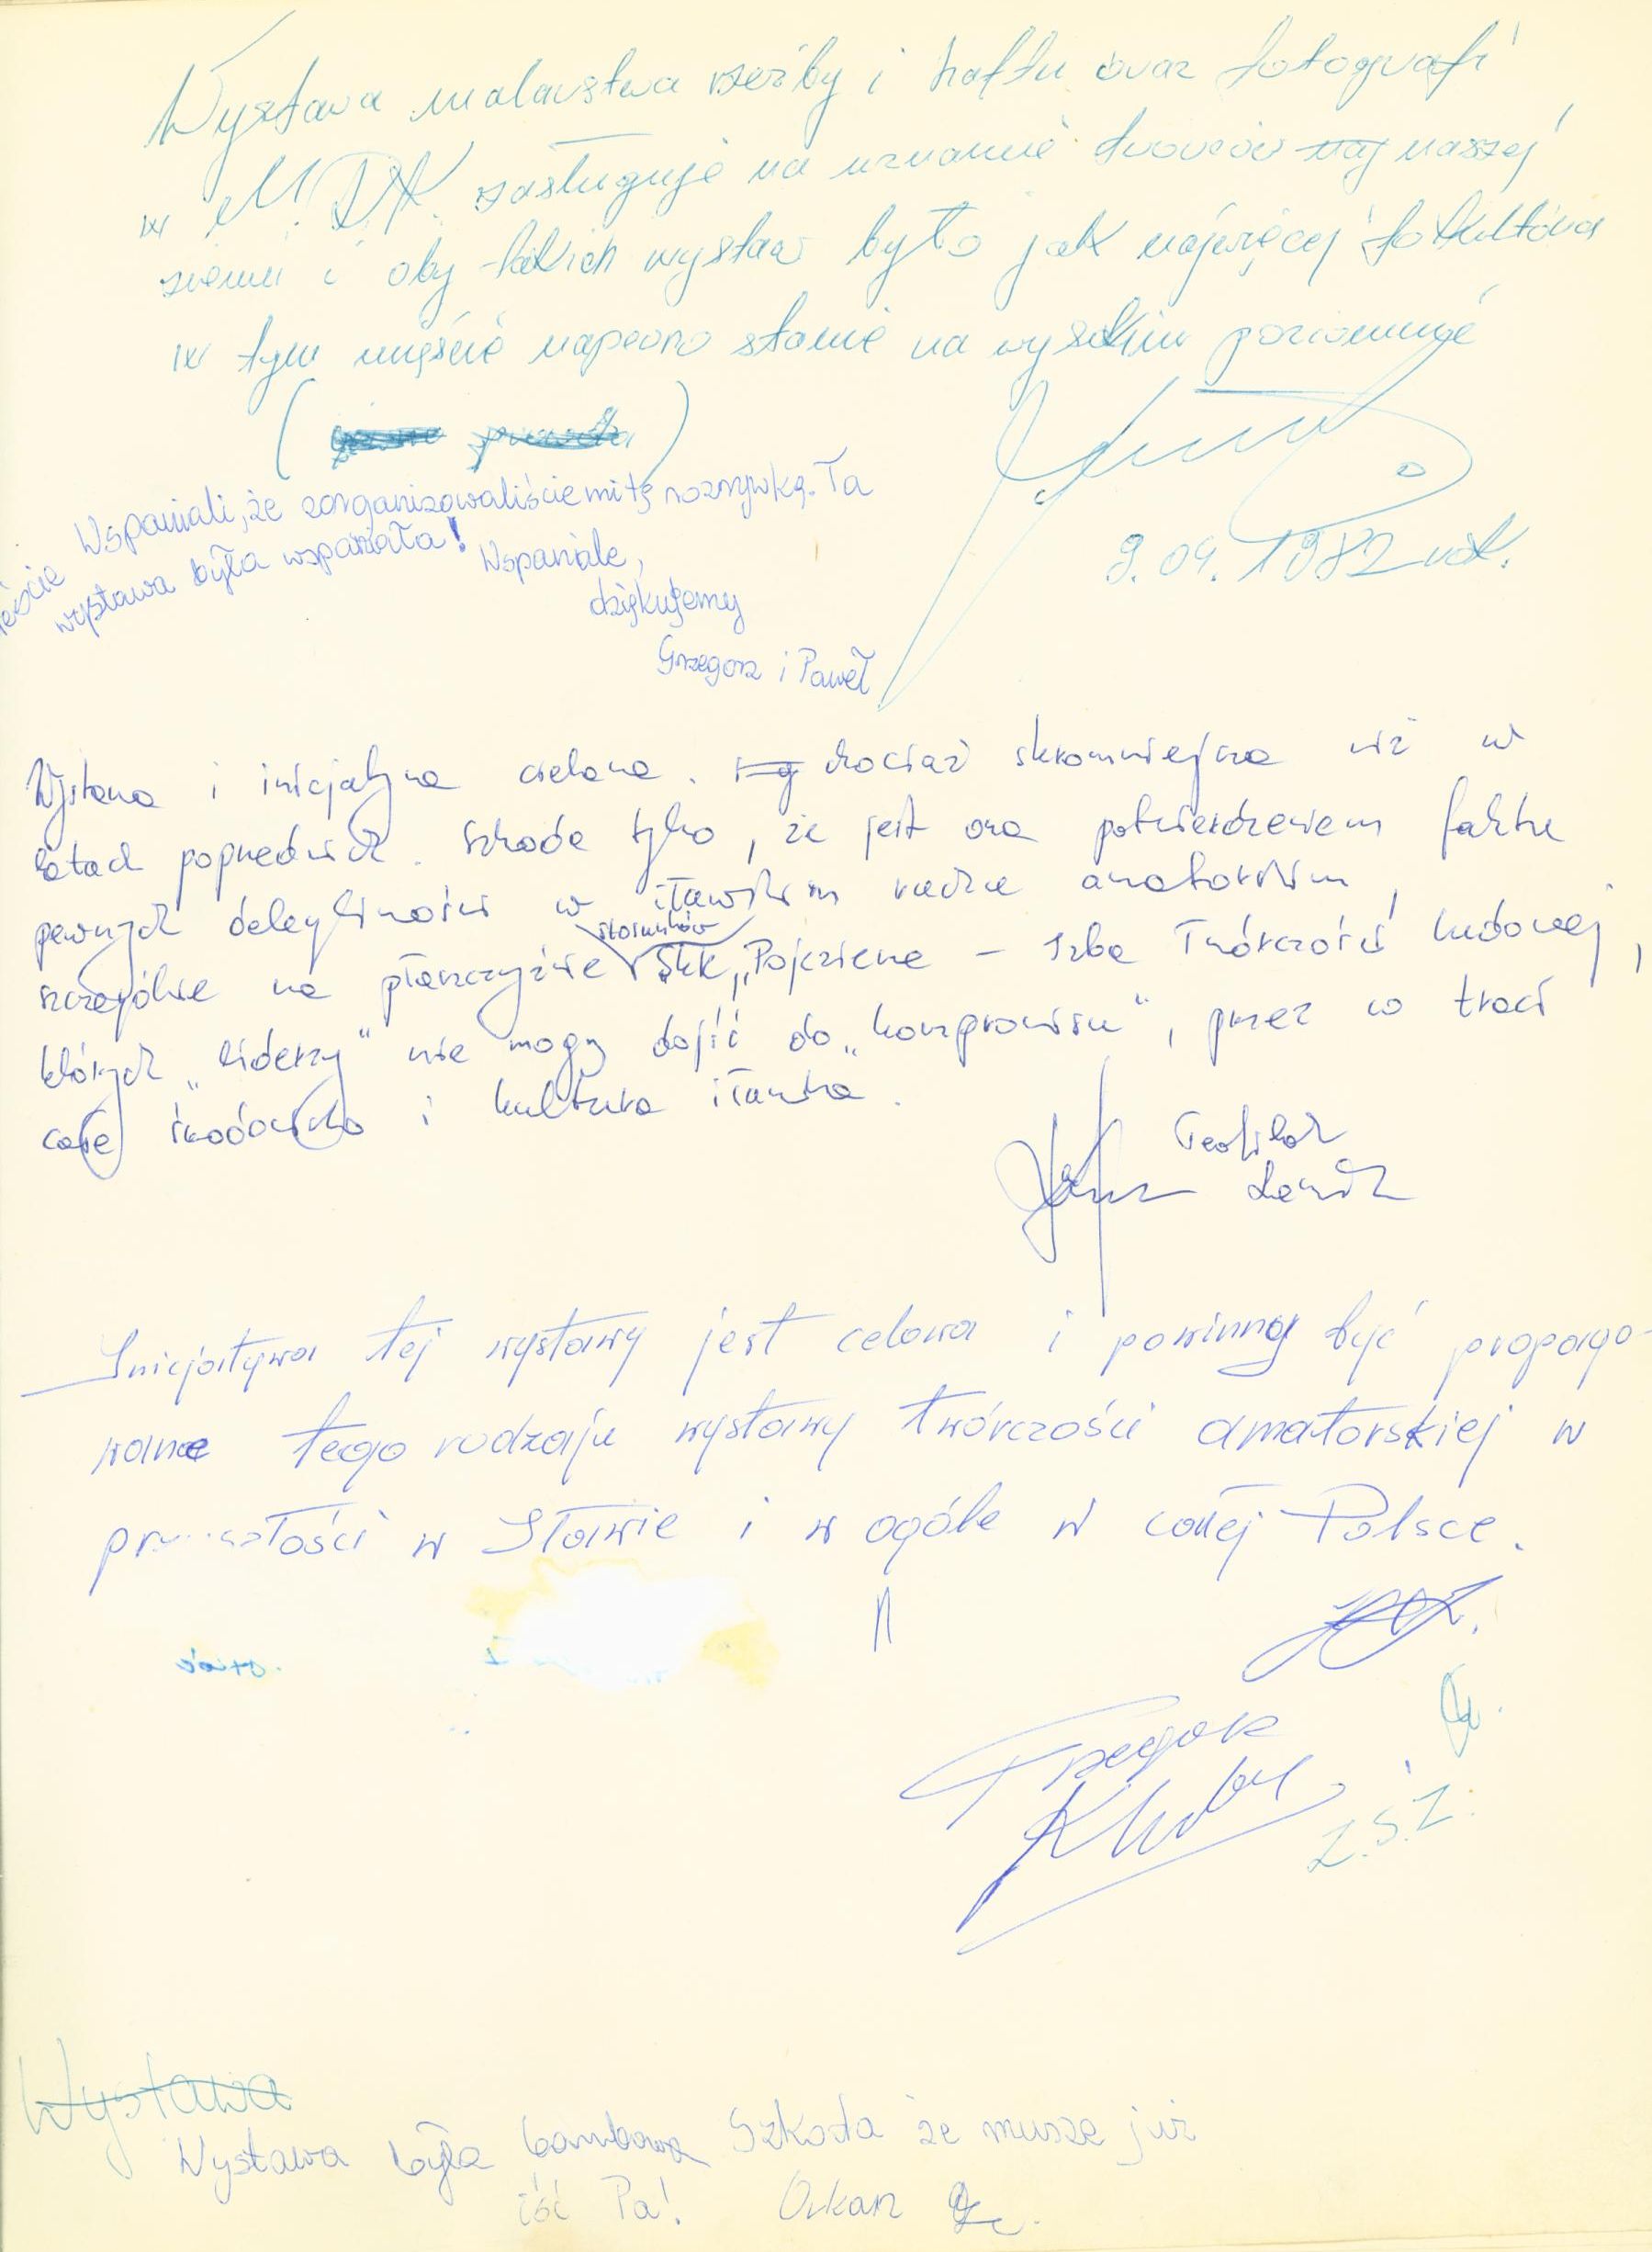 Wystawa malarstwa rzeźby i haftu oraz fotografi
w M.D.K. zasługuje na uznanie twórców naj naszej
ziemi i oby takich wystaw było jak najwięcej
w tym mięście napewno stanie na wysokim poziomie
9.04.1982 rok.
Wspaniali, że zorganizowaliście mi tę rozrywkę. Ta
wystawa była wspaniała! Wspaniale,
dziękujemy
Grzegorz i Paweł
Wystawa i inicjatywa celowa. chociaż skromniejsza niż w
latach poprzednich. Szkoda tylko, że jest ona potwierdzeniem faktu
pewnych w iławskim ruchu amatorskim,
szczególnie na płaszczyźnie stosunków SKK „Pojezierze – Izba Twórczości Ludowej,
których „liderzy” nie mogą dojść do „kompromisu”, przez co traci
całe środowisko i kultura iławska.
Inicjatywa tej wystawy jest celowa i powinny być propago-
wane tego rodzaju wystawy twórczości amatorskiej w
przyszłości w Iławie i w ogóle w całej Polsce.
Z.S.Z.
Wystawa
Wystawa była bombowa Szkoda że musze już
iść Pa! Orkan